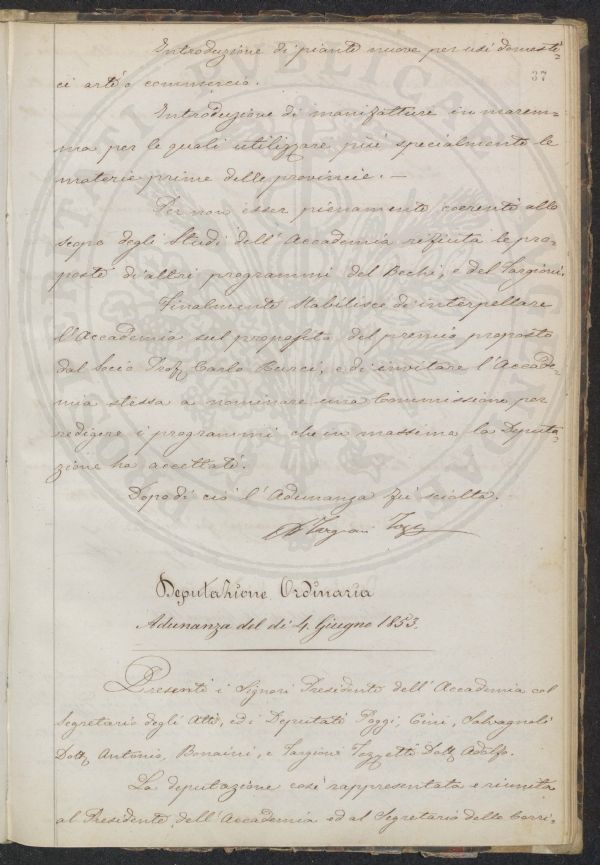 Introduzione di piante nuove per usi domesti=
37
ci arti e commercio.
Introduzione di manifatture in marem=
ma per le quali utilizzare più specialmente le
materie prime delle provincie. —
Per non esser pienamente coerenti allo
scopo degli Studi dell'Accademia rifiuta le pro=
poste di altri programmi del Bechi, e del Targioni.
Finalmente stabilisce di interpellare
l'Accademia sul proposito del premio proposto
dal Socio Prof. Carlo Burci, e di invitare l'Accade=
mia stessa a nominare una Commissione per
redigere i programmi che in massima la Deputa=
zione ha accettati.
Dopo di ciò l'Adunanza fù sciolta.
Targioni Tozz
Deputazione Ordinaria
Adunanza del dì 4 Giugno 1853.
Presenti i Signori Presidente dell'Accademia col
Segretario degli Atti, ed i Deputati Poggi, Cini, Salvagnoli
Dott. Antonio, Bonaini, e Targioni Tozzetti Dott. Adolfo.
La deputazione così rappresentata e riunita
al Presidente dell'Accademia ed al Segretario delle Corri=